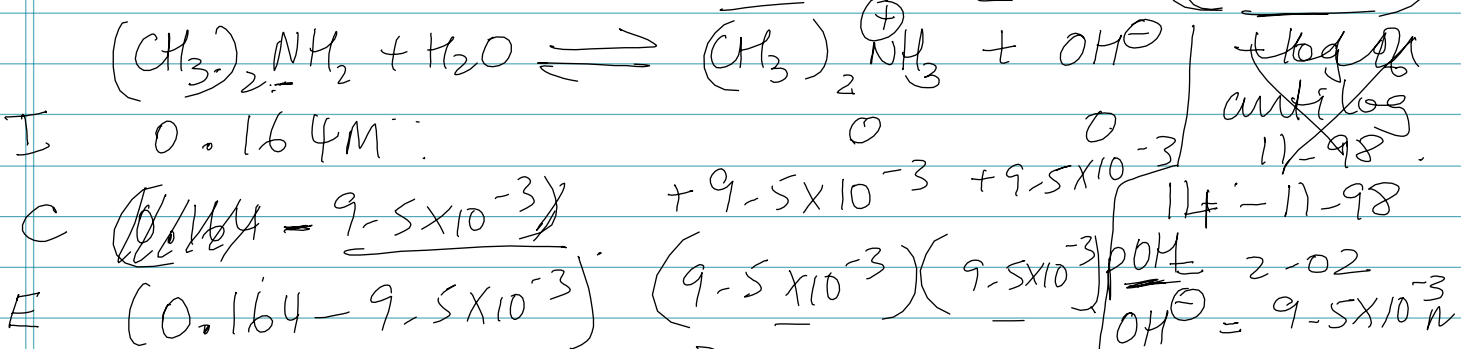 (CH₃)₂ṄH₂ + H₂O ⇌ (CH₃)₂N⊕H₃ + OH⊖
I 0.164M 0 0
C - 9.5×10⁻³ +9.5×10⁻³ +9.5×10⁻³
E (0.164 - 9.5×10⁻³) (9.5×10⁻³)(9.5×10⁻³)
antilog
11.98
14 - 11.98
pOH 2.02
OH⊖ = 9.5×10⁻³